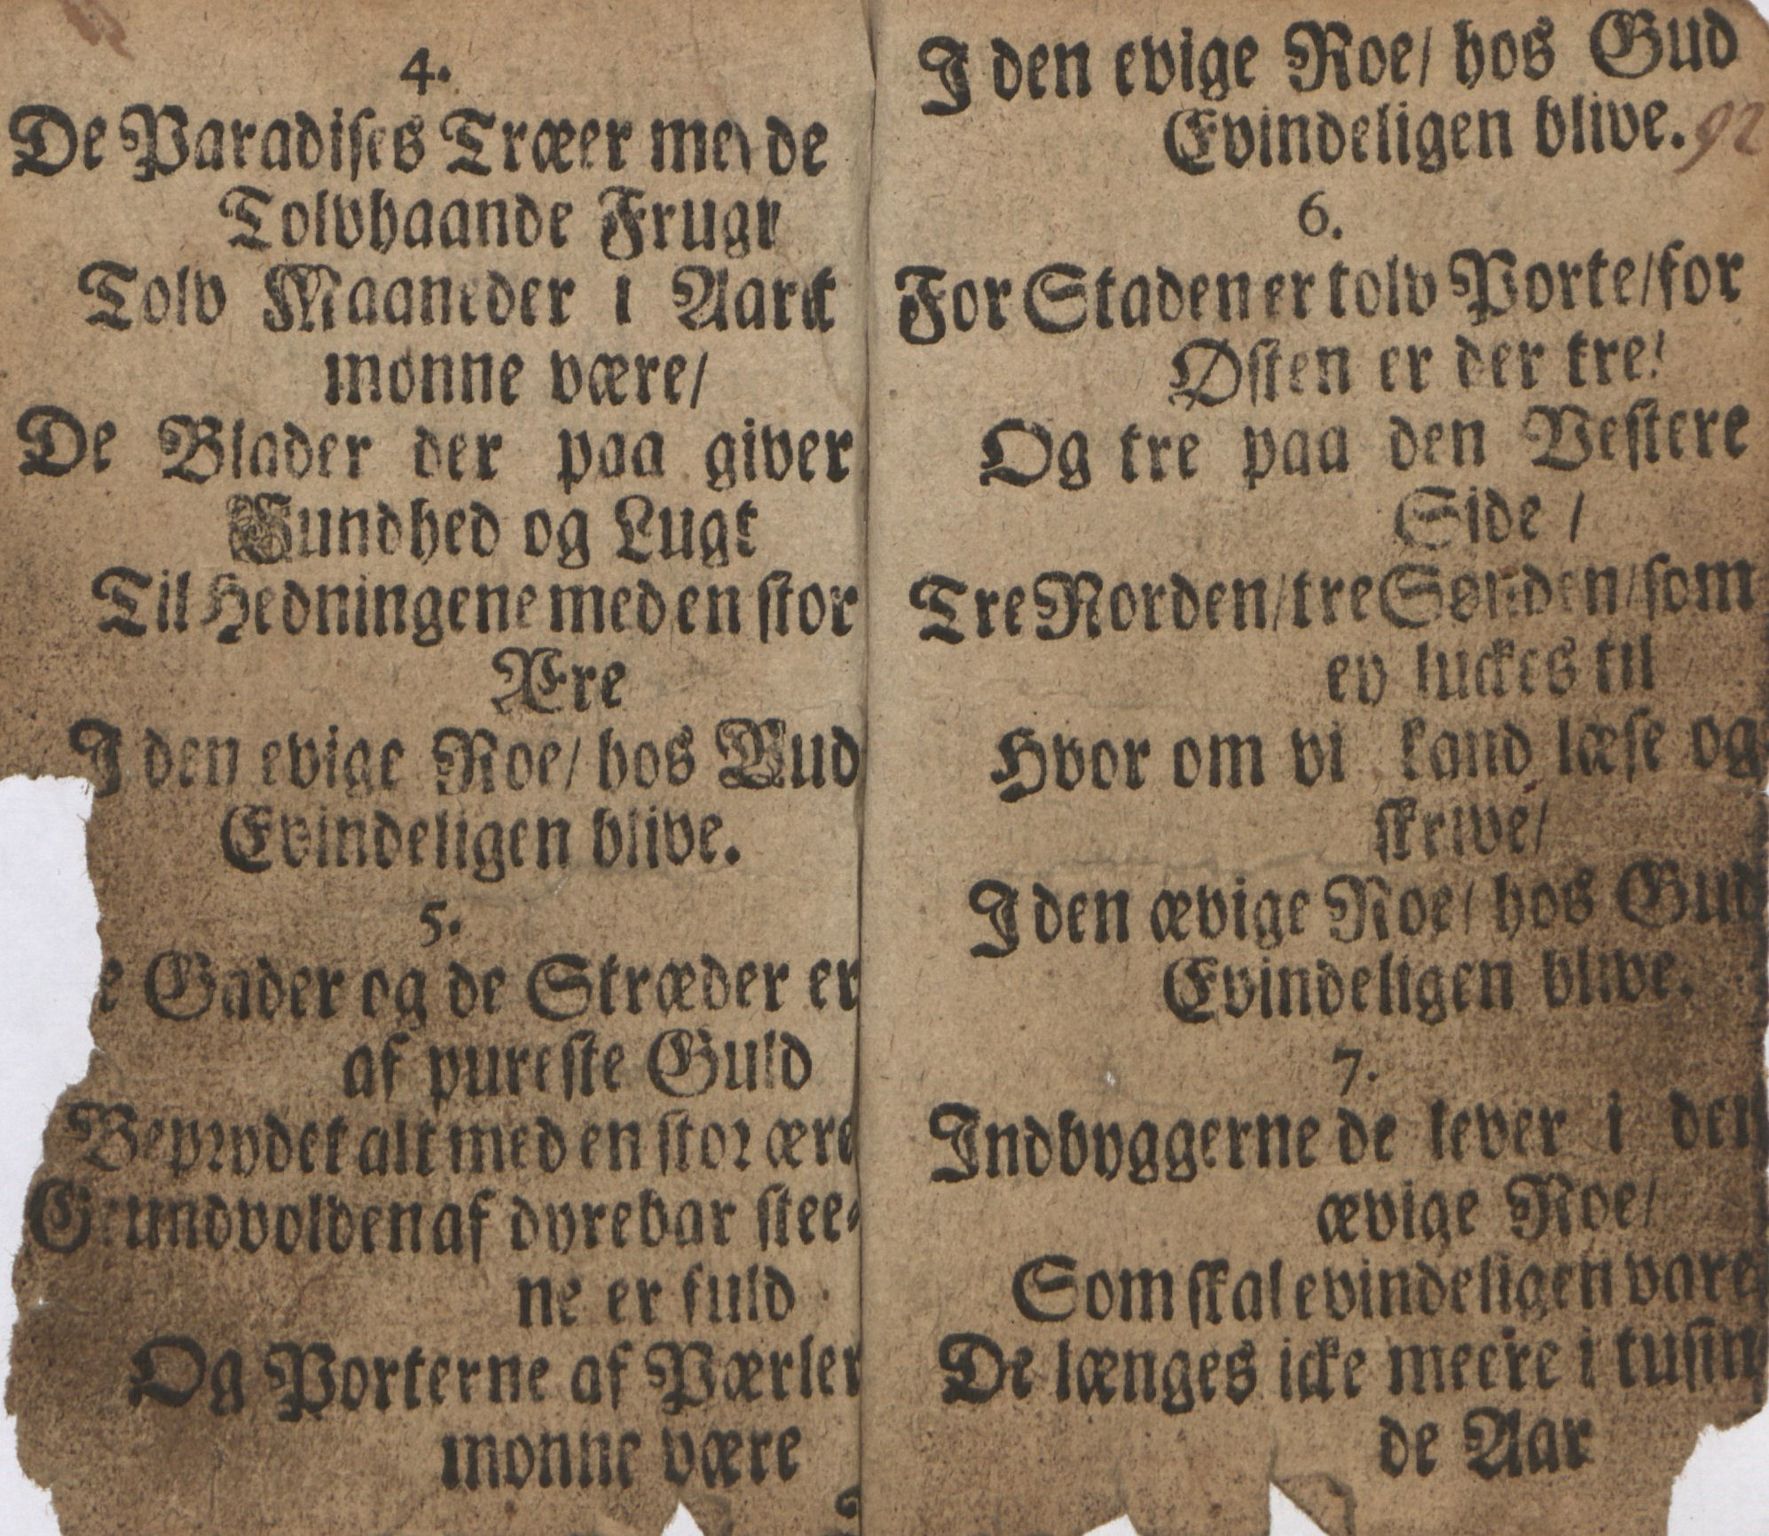 4.
De Paradises Træer med de
Tolvhaande Frugt
Tolv Maaneder i Aaret
monne være/
De Blader der paa giver
Sundhed og Lugt
Til Hedningene med en stor
Ære
I den evige Roe/ hos Gud
Evindeligen blive.
5.
e Gader og de Stræder er
af pureste Guld
Beprydet alt med en stor ære
Grundvolden af dyrebar stee-
ne er fuld
Og Porterne af Pærler
monne være
I den evige Roe/ hos Gud
Evindeligen blive.
92
6.
For Staden er tolv Porte/ for
Østen er der tre/
Og tre paa den Vestere
Side /
Tre Norden/ tre Sønden/ som
ey luckes til
Hvor om vi kand læse og
skrive/
I den ævige Roe/ hos Gud
Evindeligen blive.
7.
Indbyggerne de lever i den
ævige Roe/
Som skal evindeligen vare
De længes icke meere i tusin
de Aar